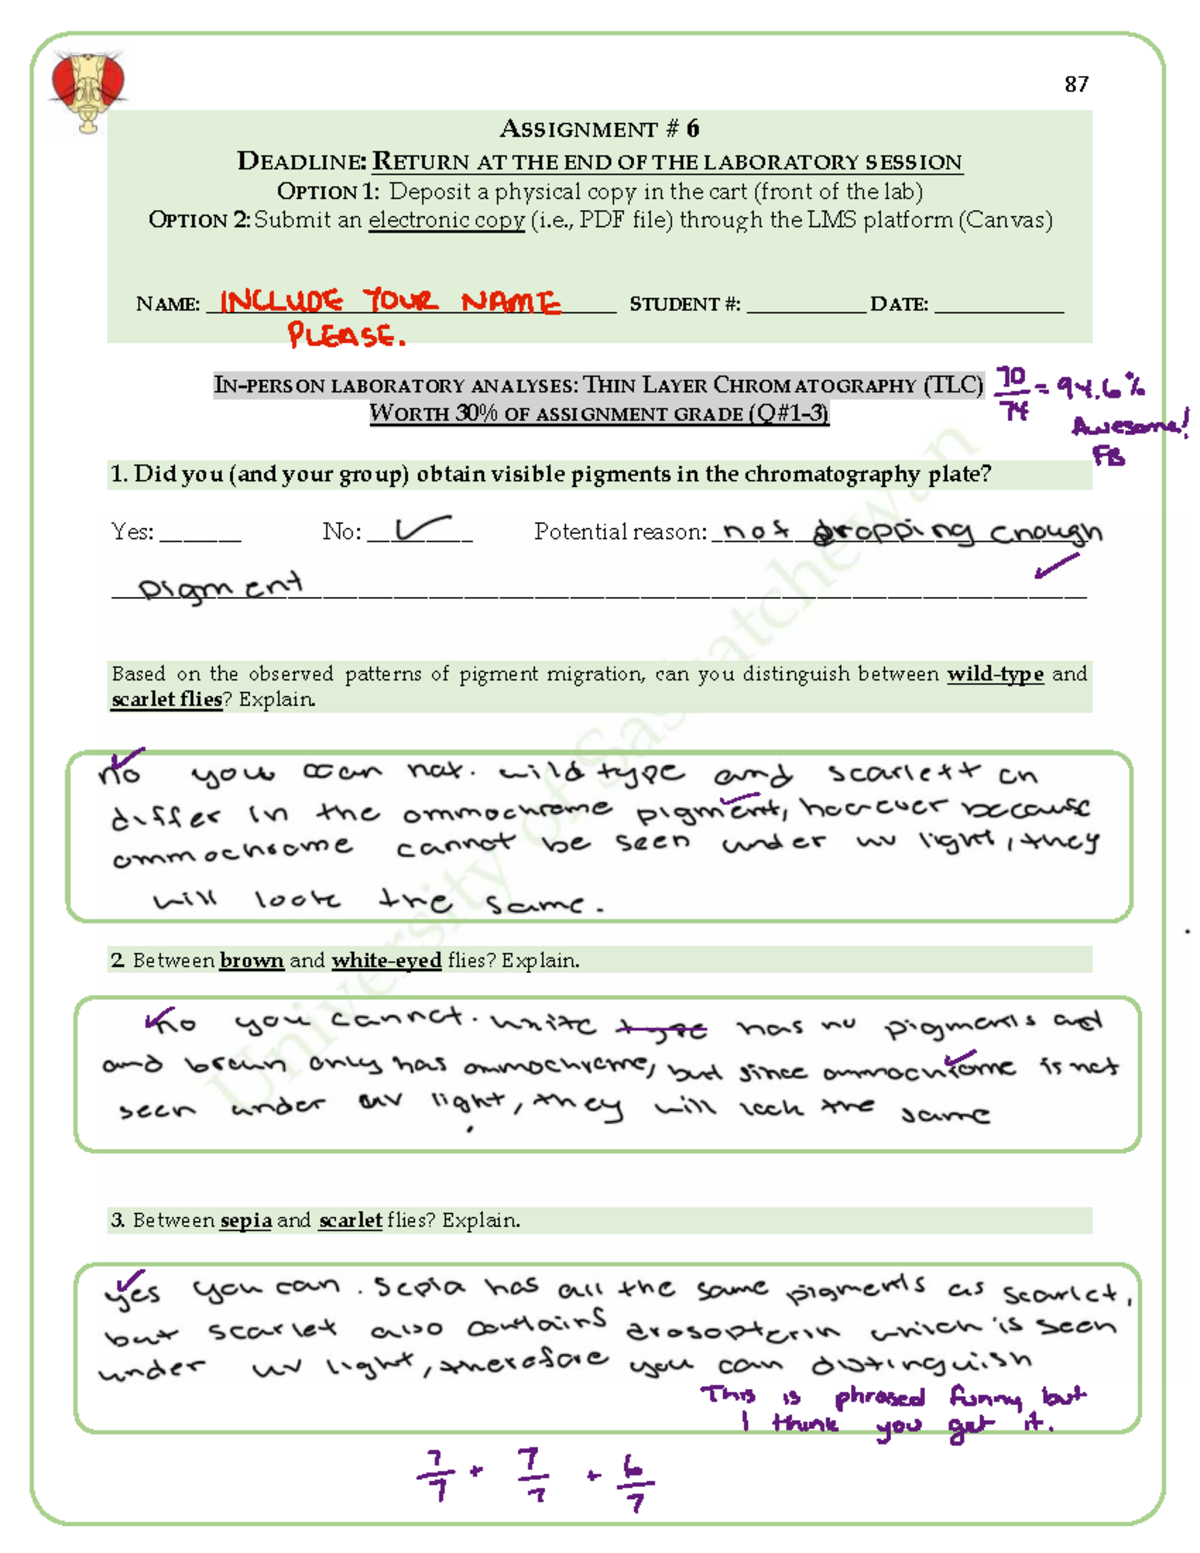 87
ASSIGNMENT # 6
DEADLINE: RETURN AT THE END OF THE LABORATORY SESSION
OPTION 1: Deposit a physical copy in the cart (front of the lab)
OPTION 2: Submit an electronic copy (i.e., PDF file) through the LMS platform (Canvas)
NAME: INCLUDE YOUR NAME STUDENT #: ____________ DATE: ____________
PLEASE.
IN-PERSON LABORATORY ANALYSES: THIN LAYER CHROMATOGRAPHY (TLC) 70/74 = 94.6%
WORTH 30% OF ASSIGNMENT GRADE (Q#1-3)
Awesome!
FB
1. Did you (and your group) obtain visible pigments in the chromatography plate?
Yes: ______ No: ✓ Potential reason: not dropping enough
pigment ✓
Based on the observed patterns of pigment migration, can you distinguish between wild-type and
scarlet flies? Explain.
no you can not. wild type and scarlett
differ in the ommochrome pigment, however because
ommochrome cannot be seen under uv light, they
will look the same.
2. Between brown and white-eyed flies? Explain.
no you cannot. white type has no pigments
and brown only has ommochrome, but since ommochrome is not
seen under uv light, they will look the same
3. Between sepia and scarlet flies? Explain.
yes you can. Sepia has all the same pigments as scarlet,
but scarlet also contains drosopterin which is seen
under uv light, therefore you can distinguish
This is phrased funny but
I think you get it.
7/7 + 7/7 + 6/7
University of Saskatchewan